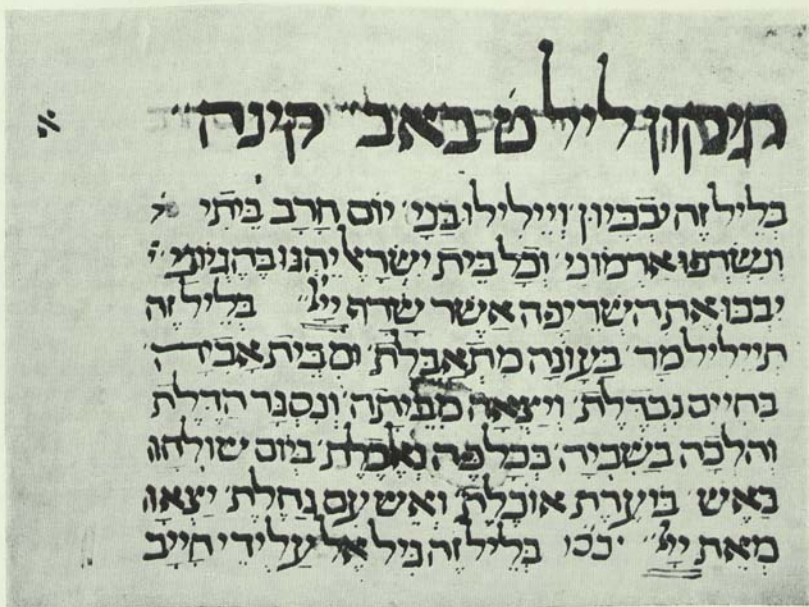 תיקון ליל ט באב קינה
א
בְּלֵיל זֶה יִבְכָּיוּן וְיֵילִילוּ בָּנַי יוֹם חָרַב בֵּיתִי
וְנִשְׂרְפוּ אַרְמוֹנַי וְכָל בֵּית יִשְׂרָאֵל יֶהְגּוּ בְּהֶגְיוֹנַי
יִבְכּוּ אֶת הַשְּׂרֵיפָה אֲשֶׁר שָׂרַף יְיָ בְּלֵיל זֶה
תְּיֵילִיל מַר בְּעוֹנָהּ מִתְאַבֶּלֶת וּמִבֵּית אָבִיהָ
בְּחַיִּים נִבְדֶּלֶת וְיָצְאָה מִבֵּיתָהּ וְנִסְגַּר הַדֶּלֶת
וְהָלְכָה בַּשִּׁבְיָה בְּכָל פֶּה נֶאֱכֶלֶת בְּיוֹם שׁוּלְּחָה
בָּאֵשׁ בּוֹעֶרֶת אוֹכֶלֶת וְאֵשׁ עִם גַּחֶלֶת יָצְאוּ
מֵאֵת יְיָ בְּלֵיל זֶה גִּיל אֵל עַל יְדֵי חַיָּיב